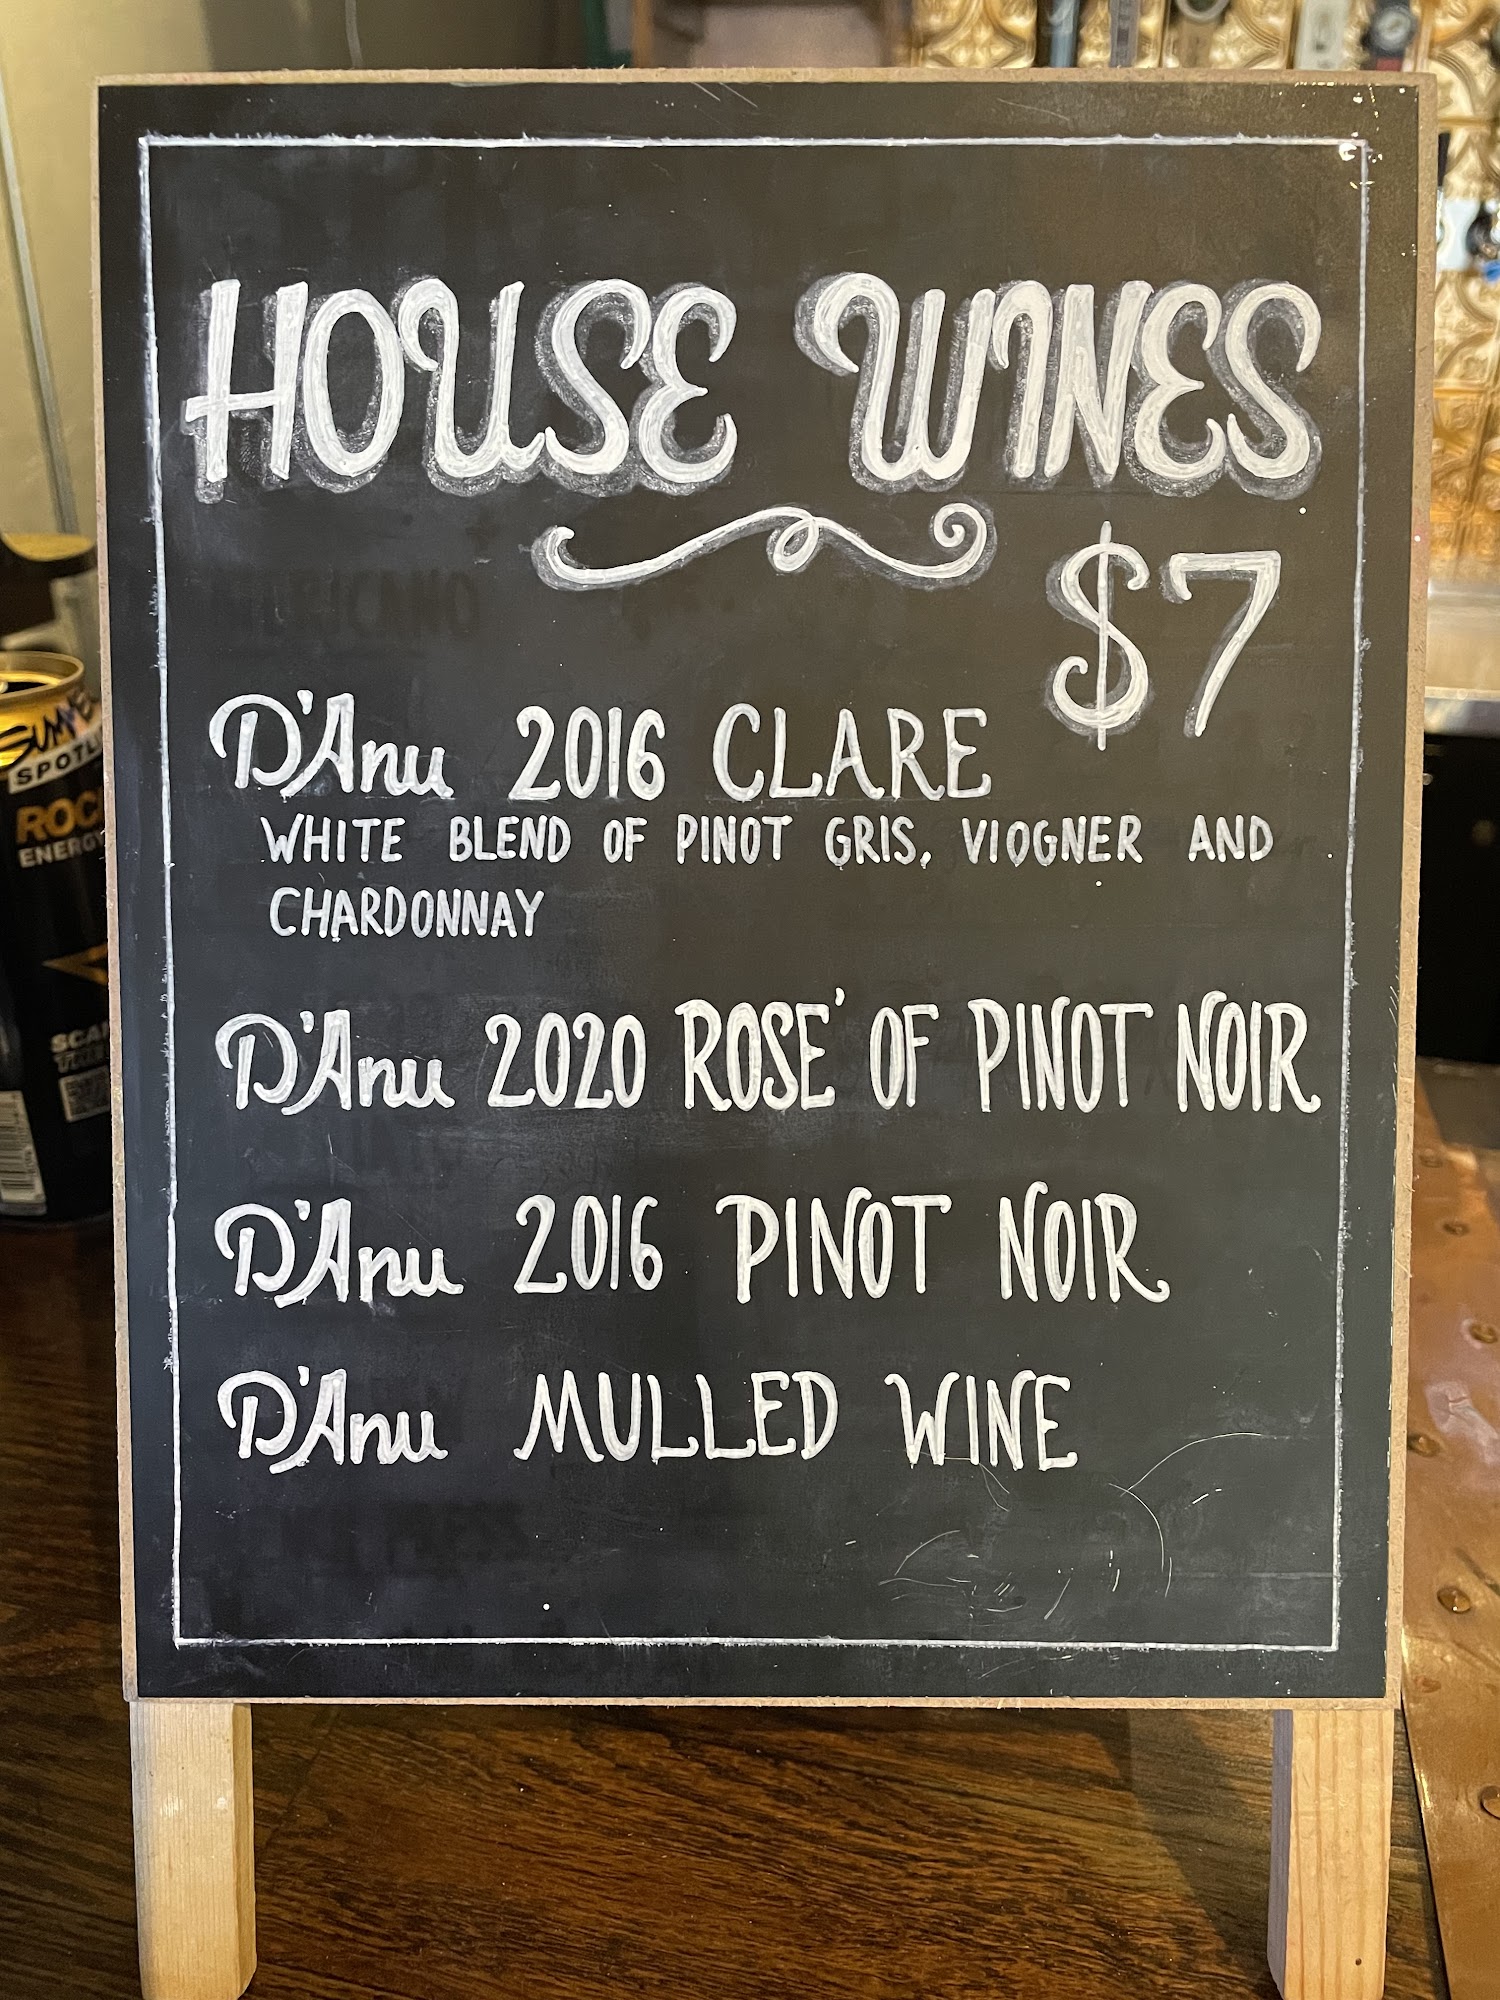 HOUSE WINES
$7
D'Anu 2016 CLARE
WHITE BLEND OF PINOT GRIS, VIOGNER AND
CHARDONNAY
D'Anu 2020 ROSÉ OF PINOT NOIR
D'Anu 2016 PINOT NOIR
D'Anu MULLED WINE
ENERGY